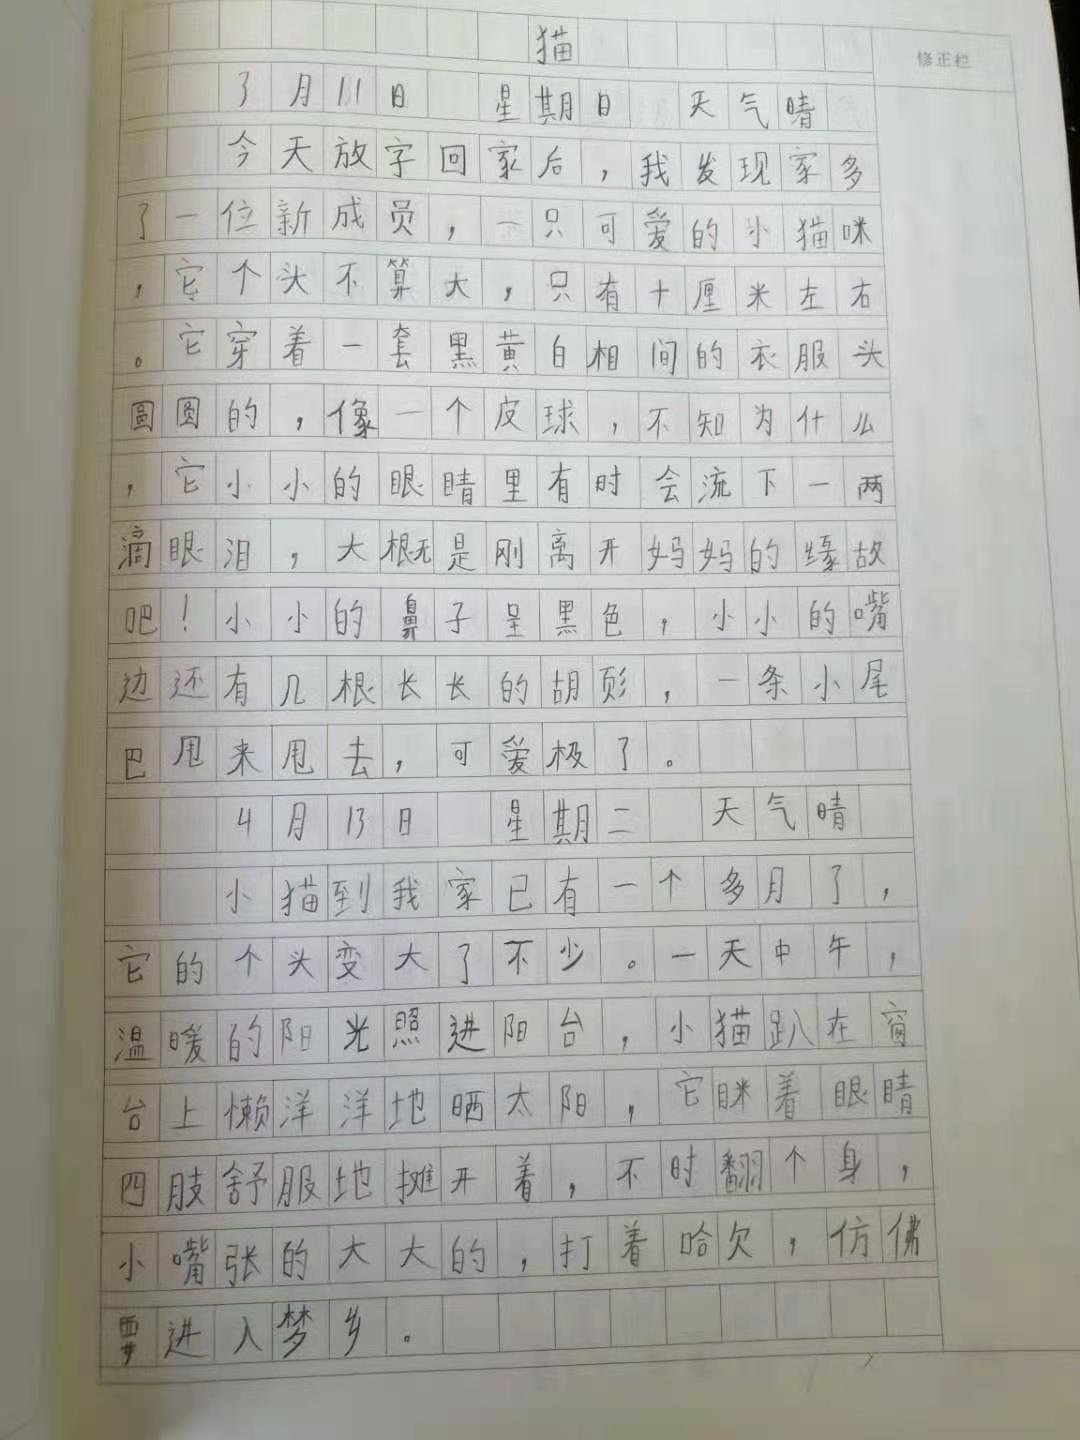 猫
修正栏
3月11日 星期日 天气晴
今天放字回家后，我发现家多
了一位新成员，一只可爱的小猫咪
，它个头不算大，只有十厘米左右
。它穿着一套黑黄白相间的衣服头
圆圆的，像一个皮球，不知为什么
，它小小的眼睛里有时会流下一两
滴眼泪，大概是刚离开妈妈的缘故
吧！小小的鼻子呈黑色，小小的嘴
边还有几根长长的胡须，一条小尾
巴甩来甩去，可爱极了。
4月13日 星期二 天气晴
小猫到我家已有一个多月了，
它的个头变大了不少。一天中午，
温暖的阳光照进阳台，小猫趴在窗
台上懒洋洋地晒太阳，它眯着眼睛
四肢舒服地摊开着，不时翻个身，
小嘴张的大大的，打着哈欠，仿佛
要进入梦乡。